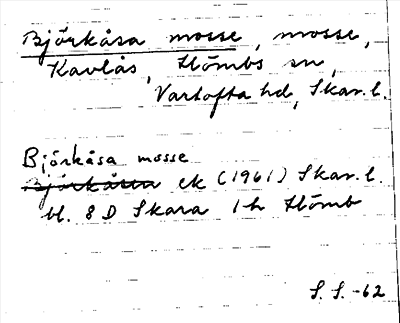 Björkåsa mosse, mosse,
Kavlås, Hömbs sn,
Vartofta hd, Skar. l.
Björkåsa mosse
Björkåsen ek (1961) Skar. l.
bl. 8 D Skara 1h Hömb
S. S. -62